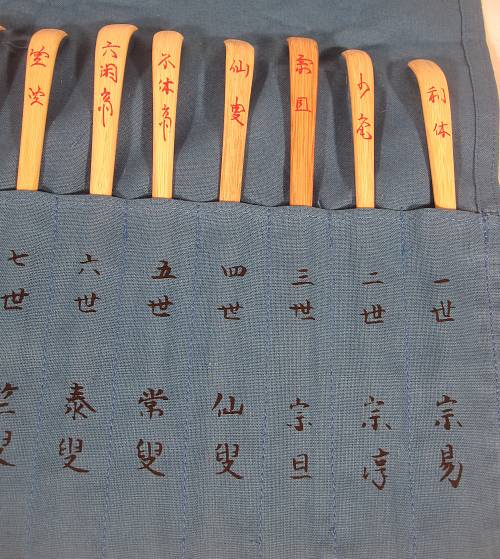 利体
少庵
宗旦
仙叟
不休斎
六閑斎
一世
宗易
二世
宗淳
三世
宗旦
四世
仙叟
五世
常叟
六世
泰叟
七世
竺叟